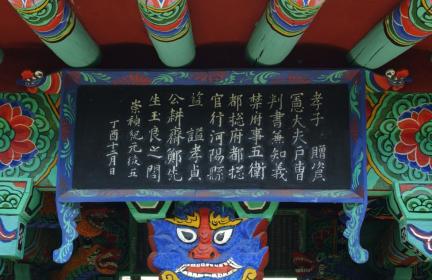 孝子 贈資
憲大夫戶曹
判書兼知義
禁府事五衛
都摠府都摠
官行河陽縣
監 諡孝貞
公耕齋鄭先
生玉良之閭
崇禎紀元後五
丁酉十二月日